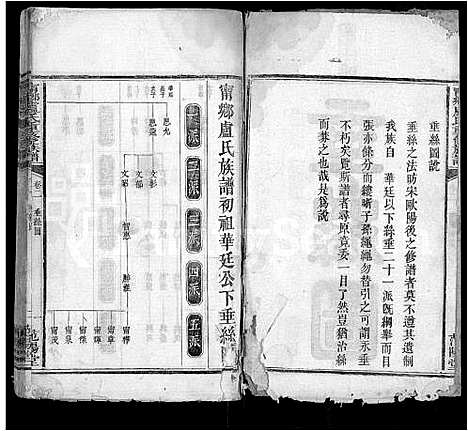 垂絲圖說
垂絲之法昉宋歐陽後之修譜者莫不遵其遺制
我族自 華廷以下絲垂二十一派既綱舉而目
張亦條分而縷晰子孫繩繩勿替引之可期永垂
不朽矣覽斯譜者尋原竟委一目了然豈猶治絲
而棼之哉是爲說
甯鄉盧氏族譜初祖華廷公下垂絲
一派 二派 三派 四派 五派
華廷
思允
思恭
文彭
文郁
文
智惠
甯章
甯輝
甯傑
甯茂
卷二 垂絲圖
范陽堂